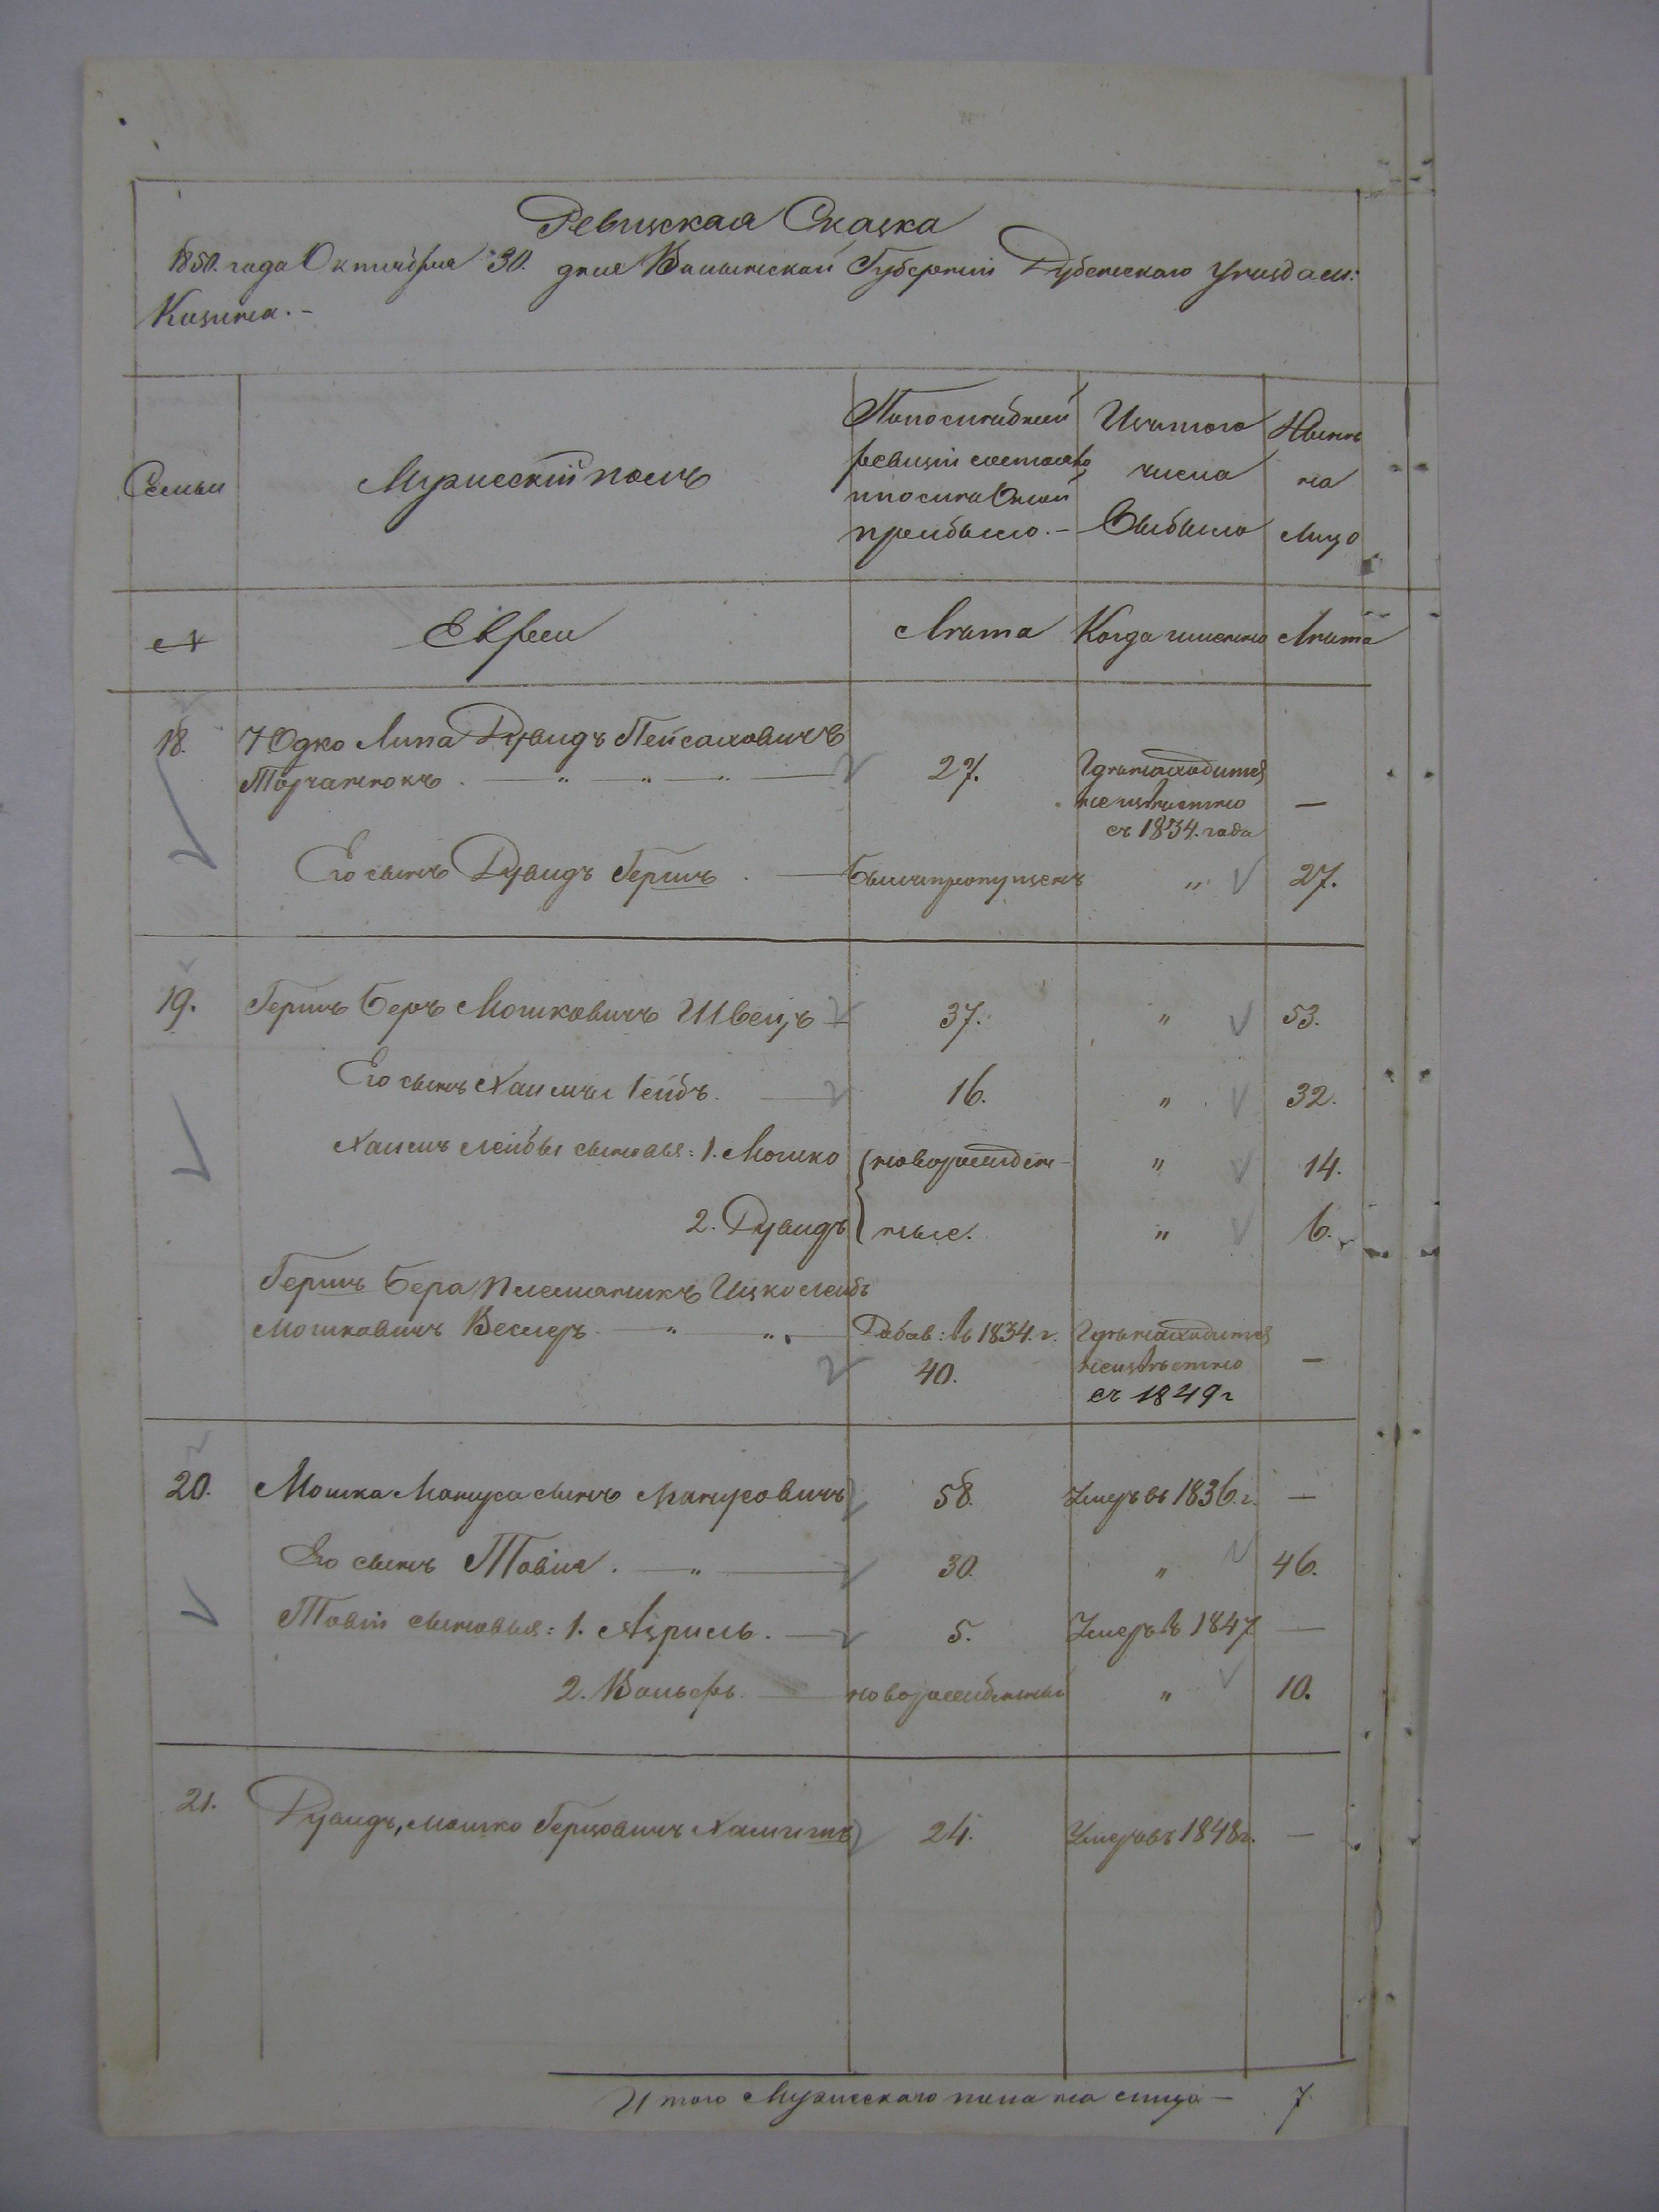 Ревизская Сказка
1850. года Октября 30. дня Волынской Губернии Дубенскаго уезда м:
Козина. -
Семьи
Мужеский полъ
По последней
ревизии состояло
и после оной
прибыло. -
Изъ того
числа
выбыло
Ныне
на
лицо
№
Евреи
Лета
Когда именно
Лета
18.
Юдко Липа Дувидъ Пейсаховичъ
27.
В неизвестно
съ 1834. года
—
Его сынъ Дувидъ Гершъ . —
Былъ пропущенъ
"
27.
19.
Гершъ Беръ Мошковичъ Швецъ
37.
"
53.
Его сынъ Хаимъ Лейбъ. —
16.
"
32.
Хаимъ Лейбы сыновья: 1. Мошко
новорожден-
"
14.
2. Дувидъ
ные.
"
6.
Гершъ Бера племянникъ Ицко Лейбъ
Мошковичъ Веслеръ — " — " —
Добав: въ 1834. г.
40.
неизвестно
съ 1849 г
—
20.
Мошка Мануса сынъ Манусовичъ
58.
Умеръ въ 1836. г.
—
Его сынъ Товия . — " —
30.
"
46.
Товии сыновья: 1. Азриль. —
5.
Умеръ въ 1847
—
2. Вольфъ. —
новорожденный
"
10.
21.
Дувидъ, Мошко Герцовичъ
24.
Умеръ въ 1848 г.
—
Итого Мужескаго пола на лицо —
7